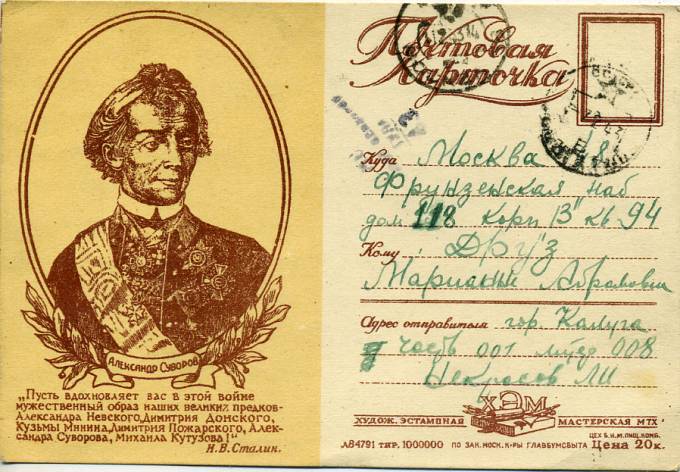 Почтовая
Карточка
Куда Москва 18
Фрунзенская наб
дом 118 корп В кв 94
Кому Друз
Марианне Абрамовне
Адрес отправителя гор. Калуга
часть 001 литер 008
Некрасов ЛИ
Александр Суворов
„Пусть вдохновляет вас в этой войне
мужественный образ наших великих предков-
Александра Невского, Димитрия Донского,
Кузьмы Минина, Димитрия Пожарского, Алек-
сандра Суворова, Михаила Кутузова!"
И. В. Сталин.
ХЭМ
ХУДОЖ. ЭСТАМПНАЯ МАСТЕРСКАЯ МТХ
ЦЕХ Б. И. М. ПИЩ. КОМБ.
Л84791 ТИР. 1000000 ПО ЗАК. МОСК. К-РЫ ГЛАВБУМСБЫТА Цена 20к.